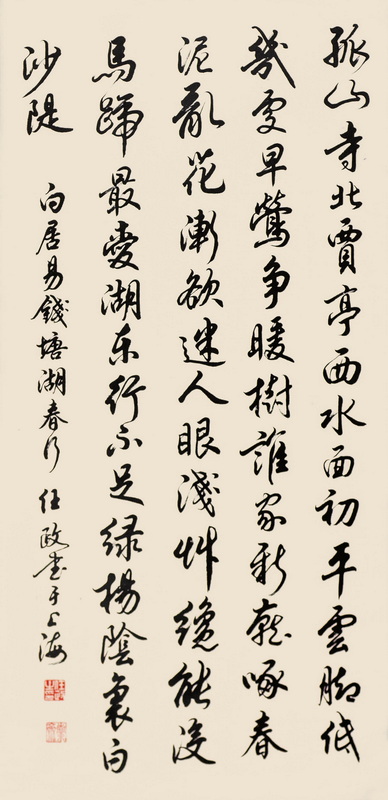 孤山寺北賈亭西水面初平雲脚低
幾處早鶯争暖樹誰家新燕啄春
泥亂花漸欲迷人眼淺艸纔能没
馬蹄最愛湖東行不足緑楊陰裏白
沙隄
白居易錢塘湖春行 任政書于上海